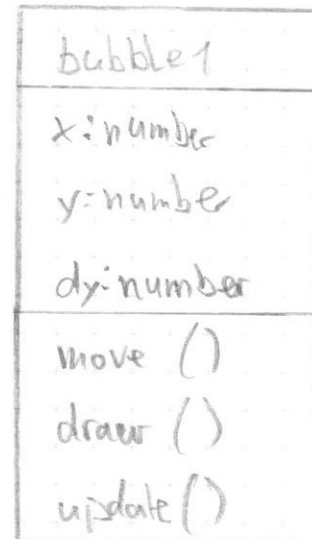 bubble1
x:number
y:number
dy:number
move ()
draw ()
update ()